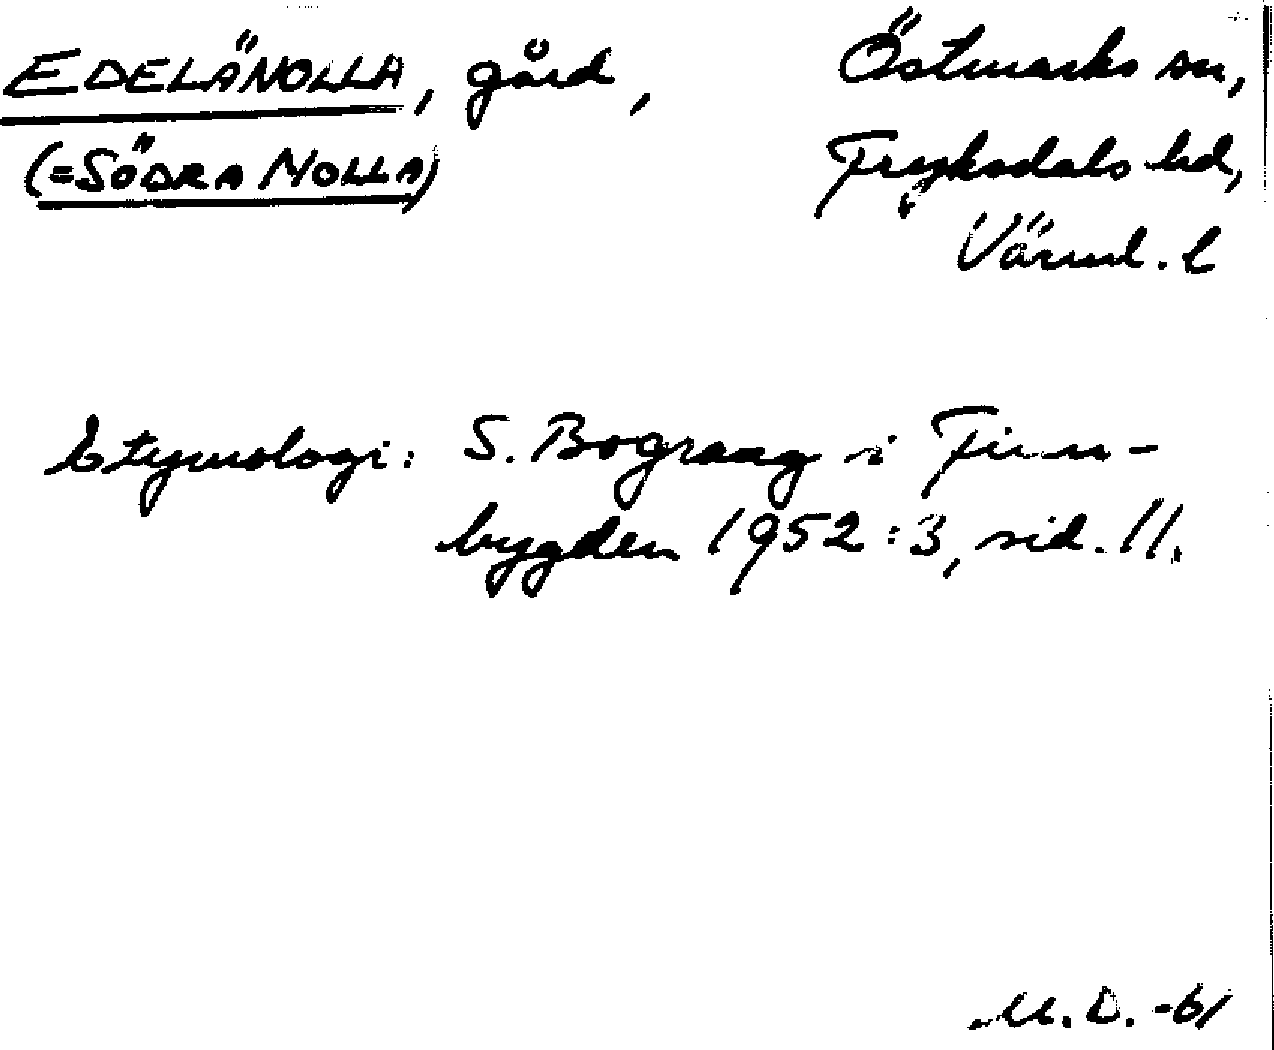 EDELÄNOLLA, gård,
(=SÖDRA NOLLA)
Östmarks sn,
Fryksdals hd,
Värml. l
Etymologi: S. Bograng i Finn-
bygden 1952:3, sid. 11.
M.D. -61